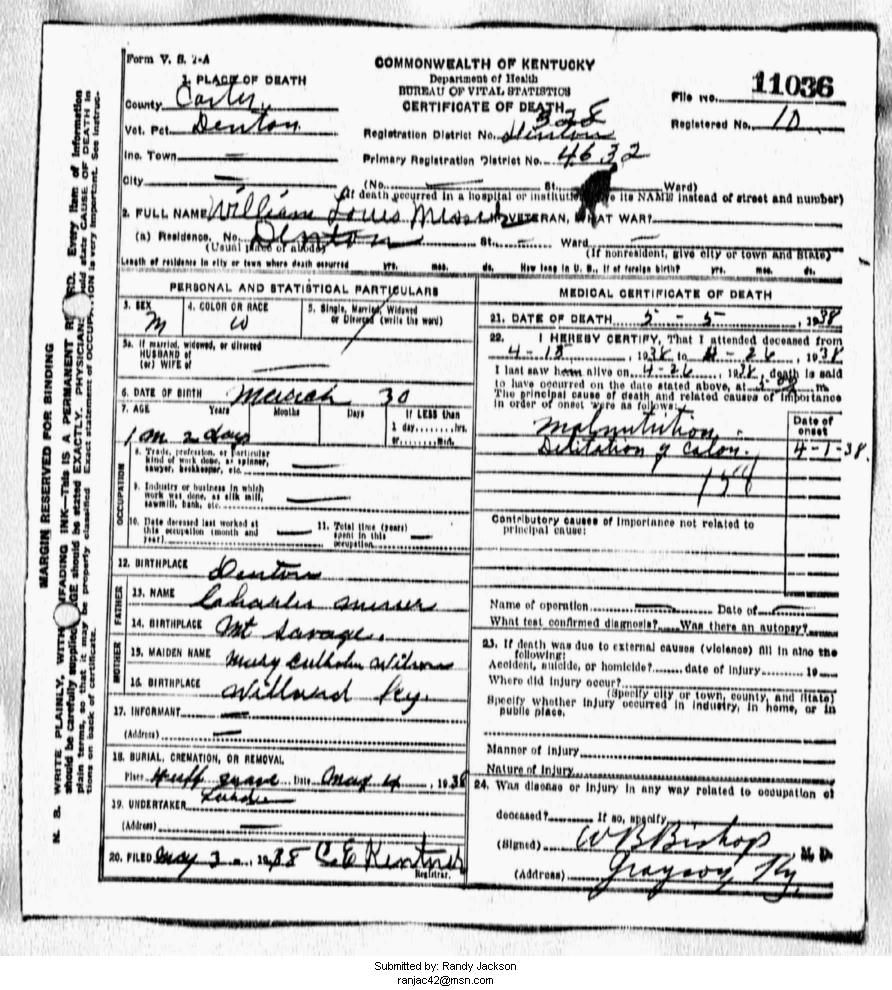 Form V. S. 1-A
COMMONWEALTH OF KENTUCKY
Department of Health
BUREAU OF VITAL STATISTICS
CERTIFICATE OF DEATH
File No. 11036
Registered No. 10
1. PLACE OF DEATH
County Carter
Vot. Pct. Denton
Inc. Town
City
Registration District No. Denton
Primary Registration District No. 4632
(No. St. Ward)
(If death occurred in a hospital or institution, give its NAME instead of street and number)
2. FULL NAME William Louis VETERAN, WHAT WAR?
(a) Residence. No. Denton St. Ward
(Usual place of abode) (If nonresident, give city or town and State)
Length of residence in city or town where death occurred yrs. mos. ds. How long in U. S., if of foreign birth? yrs. mos. ds.
PERSONAL AND STATISTICAL PARTICULARS
3. SEX M
4. COLOR OR RACE W
5. Single, Married, Widowed or Divorced (write the word)
5a. If married, widowed, or divorced
HUSBAND of
(or) WIFE of
6. DATE OF BIRTH March 30
7. AGE Years Months Days If LESS than
1 day,......hrs.
or......min.
1 m 2 days
OCCUPATION
8. Trade, profession, or particular
kind of work done, as spinner,
sawyer, bookkeeper, etc.
9. Industry or business in which
work was done, as silk mill,
sawmill, bank, etc.
10. Date deceased last worked at
this occupation (month and
year)
11. Total time (years)
spent in this
occupation
12. BIRTHPLACE Denton
FATHER
13. NAME Charles
14. BIRTHPLACE Mt Savage.
MOTHER
15. MAIDEN NAME Mary Wilson
16. BIRTHPLACE Willard Ky.
17. INFORMANT
(Address)
18. BURIAL, CREMATION, OR REMOVAL
Place Huff grave Date May 4, 1938
19. UNDERTAKER
(Address)
20. FILED May 3, 1938
Registrar.
MEDICAL CERTIFICATE OF DEATH
21. DATE OF DEATH 5 - 5, 1938
22. I HEREBY CERTIFY, That I attended deceased from
4-18, 1938 to 4-26, 1938
I last saw him alive on 4-26, 1938, death is said
to have occurred on the date stated above, at m.
The principal cause of death and related causes of importance
in order of onset were as follows:
Date of
onset
Malnutrition
Dilitation of Colon. 4-1-38.
158
Contributory causes of importance not related to
principal cause:
Name of operation Date of
What test confirmed diagnosis? Was there an autopsy?
23. If death was due to external causes (violence) fill in also the
following:
Accident, suicide, or homicide? date of injury 19
Where did injury occur?
(Specify city or town, county, and State)
Specify whether injury occurred in industry, in home, or in
public place.
Manner of Injury
Nature of Injury
24. Was disease or injury in any way related to occupation of
deceased? If so, specify
(Signed) W B Bishop M. D.
(Address) Grayson Ky
MARGIN RESERVED FOR BINDING
Submitted by: Randy Jackson
ranjac42@msn.com